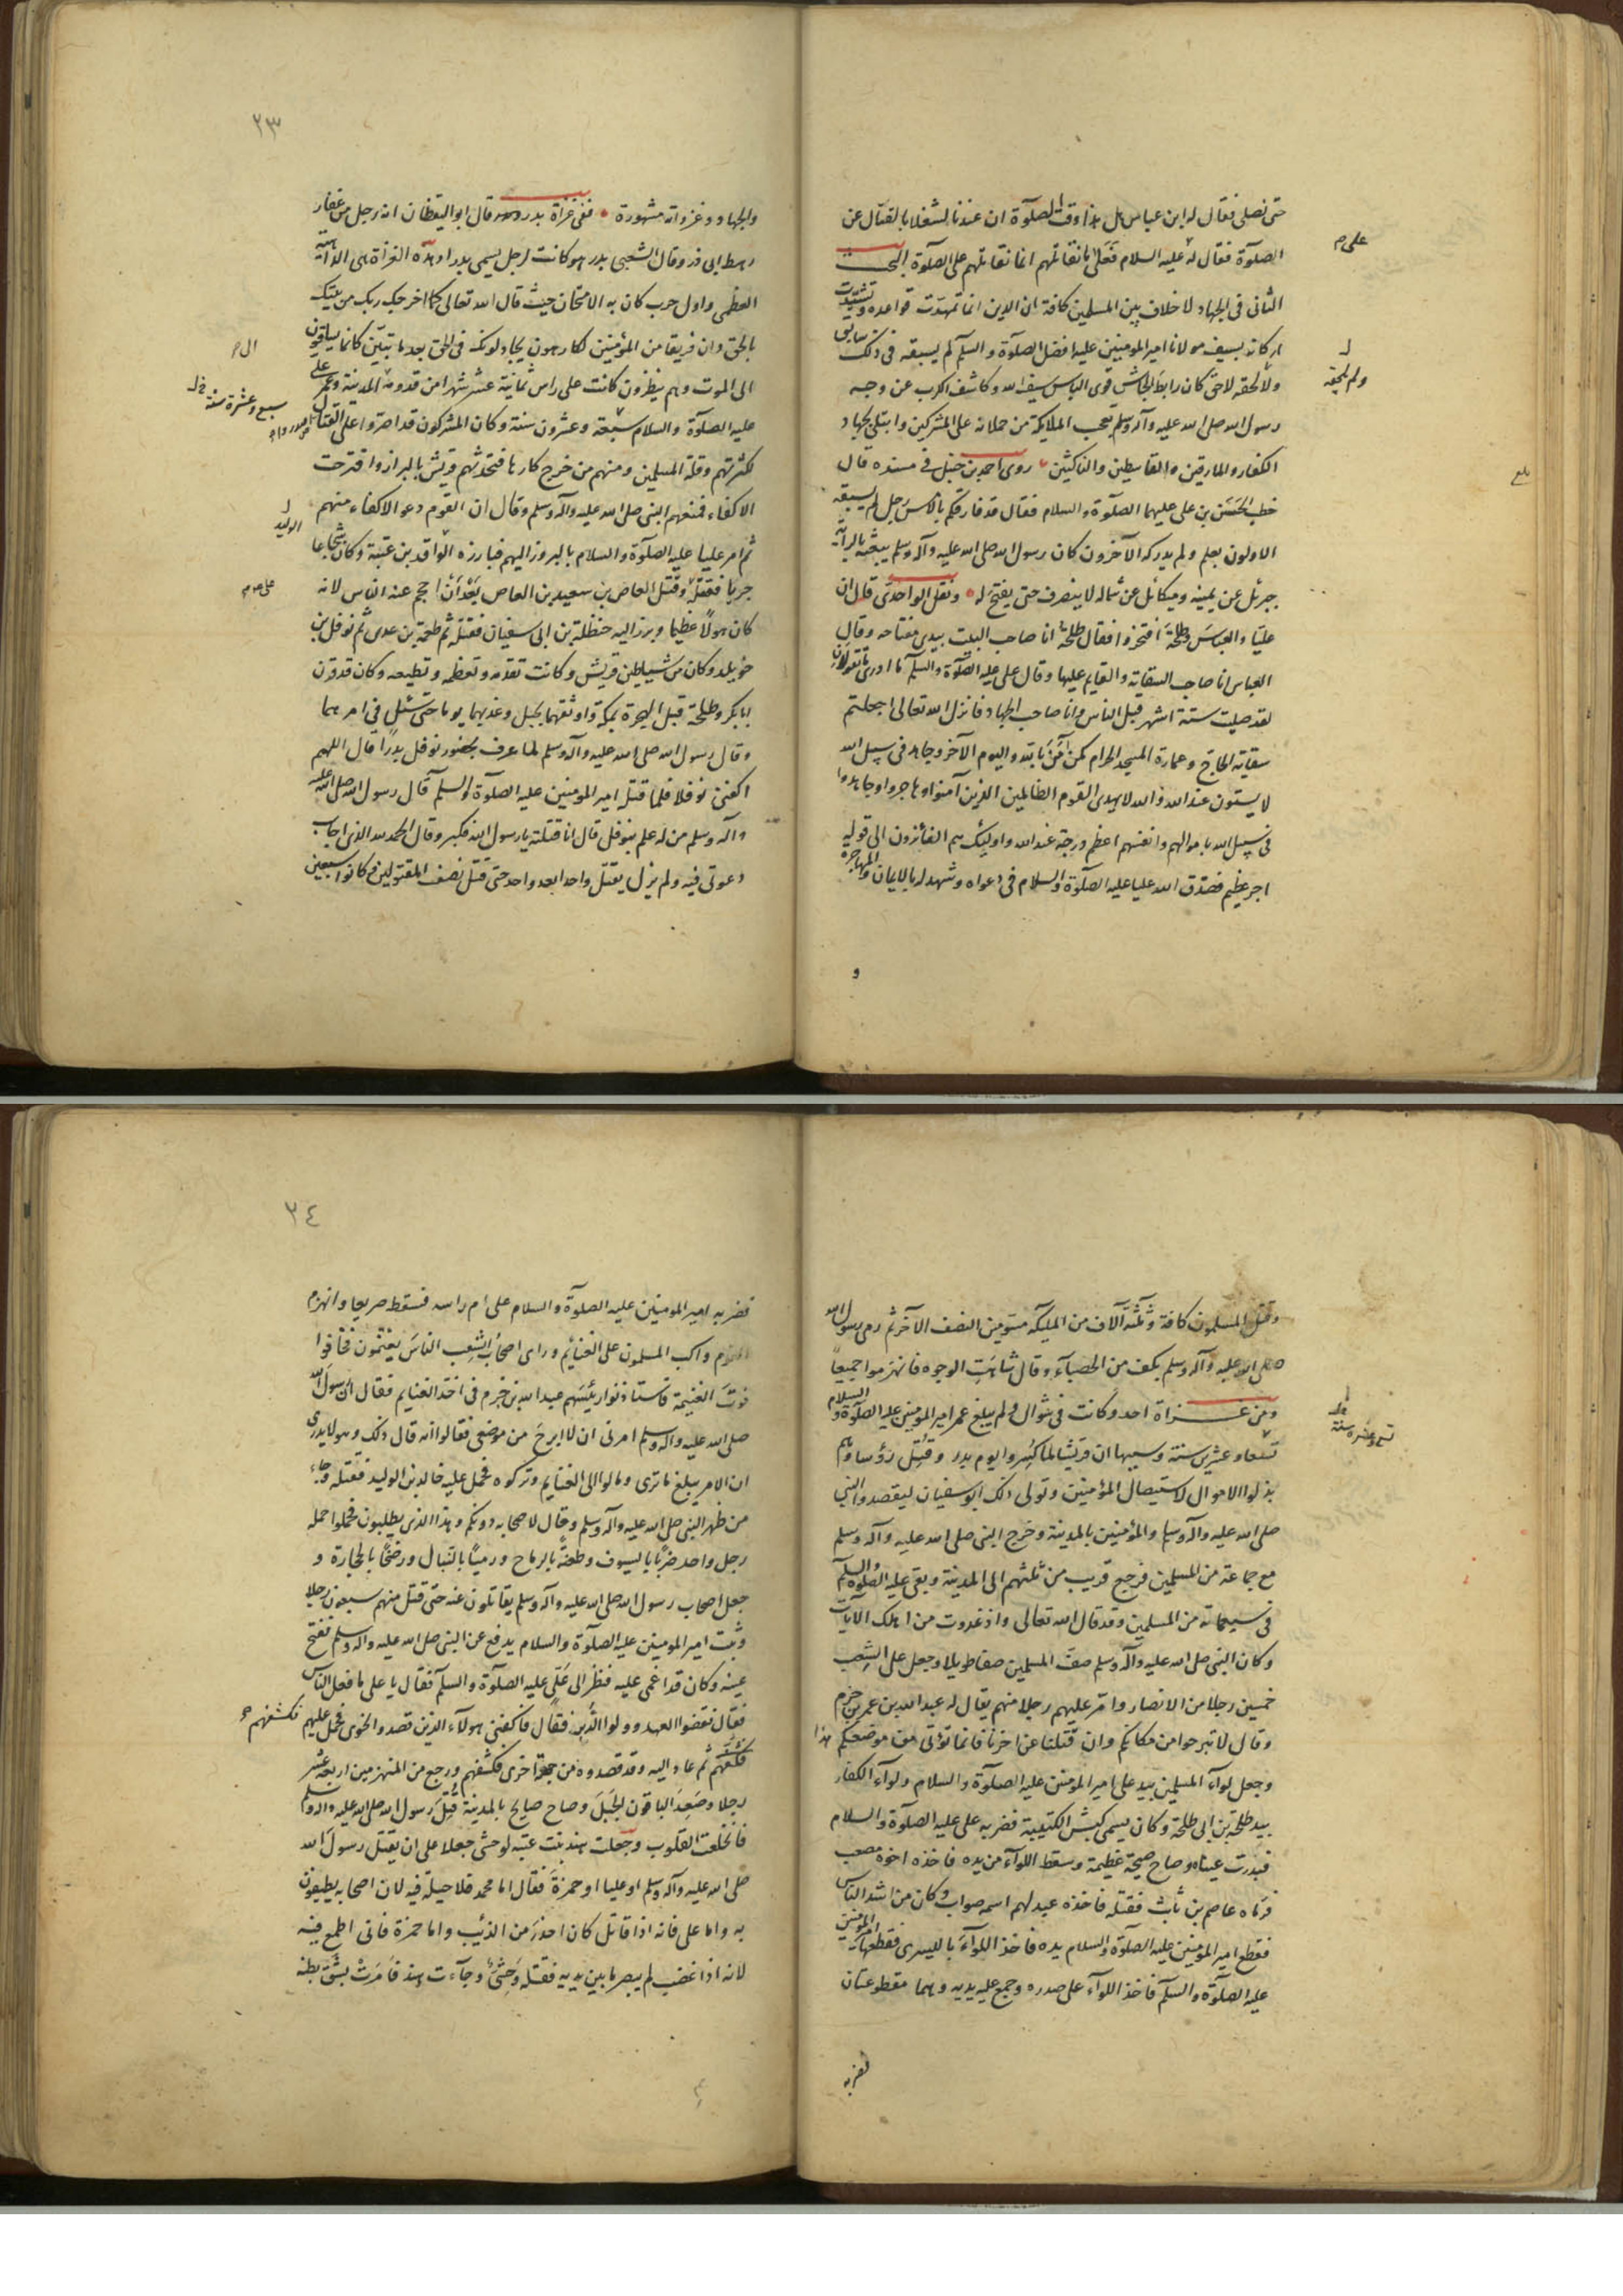 حتى نصلى فقال له ابن عباس هل هذا وقت الصلوة ان عندنا لشغلا بالقتال عن
الصلوة فقال له عليه السلام فعلى ما نقاتلهم انما نقاتلهم على الصلوة البحث
على م
الثانى فى الجهاد لا خلاف بين المسلمين كافة ان الدين انما تمهدت قواعده وتشيدت
اركانه بسيف مولانا امير المومنين عليه افضل الصلوة والسلم لم يسبقه فى ذلك سابق
ولا لحقه لاحق كان رابط الجاش قوى الباس سيف الله وكاشف الكرب عن وجه
ولم يلحقه
رسول الله صلى الله عليه وآله وسلم تعجب الملايكة من حملاته على المشركين وابتلى بجهاد
الكفار والمارقين والقاسطين والناكثين روى احمد بن حنبل فى مسنده قال
بلغ
خطب الحسن بن على عليهما الصلوة والسلام فقال قد فارقكم بالامس رجل لم يسبقه
الاولون بعلم ولم يدركه الآخرون كان رسول الله صلى الله عليه وآله وسلم يبعثه بالراية
جبرئل عن يمينه وميكائل عن شماله لا ينصرف حتى يفتح له ونقل الواحدى قال ان
عليا والعباس وطلحة افتخروا فقال طلحة انا صاحب البيت بيدى مفتاحه وقال
العباس انا صاحب السقاية والقايم عليها وقال على عليه الصلوة والسلم ما ادرى ما تقولان
لقد صليت ستة اشهر قبل الناس وانا صاحب الجهاد فانزل الله تعالى اجعلتم
سقاية الحاج وعمارة المسجد الحرام كمن آمن بالله واليوم الآخر وجاهد فى سبيل الله
لا يستون عند الله والله لا يهدى القوم الظالمين الذين آمنوا وهاجروا وجاهدوا
فى سبيل الله باموالهم وانفسهم اعظم درجة عند الله واوليك هم الفائزون الى قوله
اجر عظيم فصدق الله عليا عليه الصلوة والسلام فى دعواه وشهد له بالايمان والمهاجرة
و
٢٣
والجهاد وغزواته مشهورة ففى غزاة بدر وهى قال ابو اليقظان انه رجل من غفار
رهط ابى ذر وقال الشعبى بدر هو كانت لرجل يسمى بدرا وهذه الغزاة هى الداهية
العظمى واول حرب كان به الامتحان حيث قال الله تعالى كما اخرجك ربك من بيتك
بالحق وان فريقا من المؤمنين لكارهون يجادلونك فى الحق بعد ما تبين كانما يساقون
الى الموت وهم ينظرون كانت على راس ثمانية عشر شهرا من قدومه المدينة وعمر على
عليه الصلوة والسلام سبعة وعشرون سنة وكان المشركون قد اصروا على القتال
سبع وعشرة سنة
لكثرتهم وقلة المسلمين ومنهم من خرج كارها فتحدثهم قريش بالبراز واقترحت
الاكفاء فمنعهم النبى صلى الله عليه وآله وسلم وقال ان القوم دعو الاكفاء منهم
الوليد
ثم امر عليا عليه الصلوة والسلام بالبروز اليهم فبارزه الواقد بن عتبة وكان شجاعا
جريا فقتله وقتل العاص بن سعيد بن العاص بعد ان احجم عنه الناس لانه
كان هولا عظيما وبرز اليه حنظلة بن ابى سفيان فقتله ثم طعمة بن عدى ثم نوفل بن
خويلد وكان من شياطين قريش وكانت تقدمه وتعظمه وتطيعه وكان قد قرن
ابابكر وطلحة قبل الهجرة بمكة واوثقهما بحبل وعذبهما يوما حتى سئل فى امرهما
وقال رسول الله صلى الله عليه وآله وسلم لما عرف بحضور نوفل بدرا قال اللهم
اكفنى نوفلا فلما قتله امير المومنين عليه الصلوة والسلم قال رسول الله صلى الله عليه
وآله وسلم من له علم بنوفل قال انا قتلته يا رسول الله فكبر وقال الحمد لله الذى اجاب
دعوتى فيه ولم يزل يقتل واحدا بعد واحد حتى قتل نصف المقتولين وكانوا سبعين
وقتل المسلمون كافة وثلثة آلاف من الملبكة مسومين النصف الآخر ثم رمى رسول الله
صلى الله عليه وآله وسلم بكف من الحصباء وقال شاهت الوجوه فانهزموا جميعا
ومن غزاة احد وكانت فى شوال ولم يبلغ عمر امير المومنين عليه الصلوة والسلام
تسعا وعشرين سنة وسببها ان قريشا لما كسروا يوم بدر وقتل رؤساوهم
تسع وعشره سنة
بذلوا الاموال لاستيصال المؤمنين وتولى ذلك ابو سفيان ليقصدوا النبى
صلى الله عليه وآله وسلم والمؤمنين بالمدينة وخرج النبى صلى الله عليه وآله وسلم
مع جماعة من المسلمين فرجع قريب من ثلثهم الى المدينة وبقى عليه الصلوة والسلم
فى سبعمائة من المسلمين وقد قال الله تعالى واذ غدوت من اهلك الآيات
وكان النبى صلى الله عليه وآله وسلم صف المسلمين صفا طويلا وجعل على الشعب
خمسين رجلا من الانصار وامر عليهم رجلا منهم يقال له عبد الله بن عمر بن حزم
وقال لا تبرحوا من مكانكم وان قتلنا عن اخرنا فانما نوتى من موضعكم هذا
وجعل لواء المسلمين بيد على امير المومنين عليه الصلوة والسلام ولواء الكفار
بيد طلحة بن ابى طلحة وكان يسمى كبش الكتيبة فضربه على عليه الصلوة والسلام
فبدرت عيناه وصاح صيحة عظيمة وسقط اللواء من يده فاخذه اخوه مصعب
فرماه عاصم بن ثابت فقتله فاخذه عبد لهم اسمه صواب وكان من اشد الناس
فقطع امير المومنين عليه الصلوة والسلام يده فاخذ اللواء باليسرى فقطعها امير المومنين
عليه الصلوة والسلم فاخذ اللواء على صدره وجمع عليه يديه وهما مقطوعتان
فضربه
٢٤
فضربه امير المومنين عليه الصلوة والسلام على ام راسه فسقط صريعا وانهزم
القوم واكب المسلمون على الغنايم وراى اصحاب الشعب الناس يغتنمون فخافوا
فوت الغنيمة فاستاذنوا رئيسهم عبد الله بن حزم فى اخذ الغنايم فقال ان رسول الله
صلى الله عليه وآله وسلم امرنى ان لا ابرح من موضعى فقالوا انه قال ذلك وهو لا يدرى
ان الامر يبلغ ما ترى ومالوا الى الغنايم وتركوه فحمل عليه خالد بن الوليد فقتله وجاء
من ظهر النبى صلى الله عليه وآله وسلم وقال لاصحابه دونكم وهذا الذى يطلبون فحملوا حملة
رجل واحد ضربا بالسيوف وطعنا بالرماح ورميا بالنبال ورضخا بالحجارة و
جعل اصحاب رسول الله صلى الله عليه وآله وسلم يقاتلون عنه حتى قتل منهم سبعون رجلا
وثبت امير المومنين عليه الصلوة والسلام يدفع عن النبى صلى الله عليه وآله وسلم ففتح
عينه وكان قد اغمى عليه فنظر الى على عليه الصلوة والسلم فقال يا على ما فعل الناس
فقال نقضوا العهد وولوا الدبر فقال فاكفنى هولاء الذين قصدوا نحوى فحمل عليهم فكشفهم
فكشفهم ثم عاد اليه وقد قصدوه من جهة اخرى فكشفهم ورجع من المنهزمين اربعة عشر
رجلا وصعد الباقون الجبل وصاح صايح بالمدينة قتل رسول الله صلى الله عليه وآله وسلم
فانخلعت القلوب وجعلت هند بنت عتبه لوحشى جعلا على ان يقتل رسول الله
صلى الله عليه وآله وسلم او عليا او حمزة فقال اما محمد فلا حيلة فيه لان اصحابه يطيفون
به واما على فانه اذا قاتل كان احذر من الذئب واما حمزة فانى اطمع فيه
لانه اذا غضب لم يبصر ما بين يديه فقتله وحشى وجاءت هند فامرت بشق بطنه